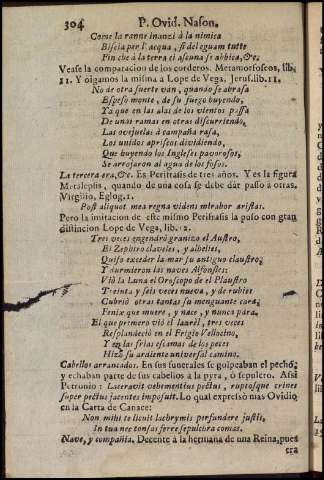 304 P. Ovid. Nason.
Come le ranne inanzi à la nimica
Biscia per l'acqua, si deleguam tutte
Fin che à la terra ci ascuna se abbica, &c.
Vease la comparacion de los corderos. Metamorfoseos, lib.
11. Y oigamos la misma a Lope de Vega, Jerus. lib. 11.
No de otra suerte ván, quando se abrasa
Espeso monte, de su fuego huyendo,
Ya que en las alas de los vientos passa
De unas ramas en otras discurriendo,
Las ovejuelas à campaña rasa,
Los unidos apriscos dividiendo,
Que huyendo los Ingleses pavorosos,
Se arrojaron al agua de los fosos.
La tercera era, &c. Es Perifrasis de tres años. Y es la figura
Metalepsis, quando de una cosa se debe dàr passo a otras.
Virgilio, Eglog. 1.
Post aliquot mea regna videns mirabor aristas.
Pero la imitacion de este mismo Perifrasis la puso con gran
distincion Lope de Vega, lib. 12.
Tres veces engendrò granizo el Austro,
El Zephiro claveles, y alhelies,
Quiso exceder la mar su antiguo claustro;
Y durmieron las naves Alfonsíes:
Viò la Luna el Oroscopo de el Plaustro
Treinta y seis veces nueva, y de rubies
Cubriò otras tantas su menguante cara;
Fenix que muere, y nace, y nunca pára.
El que primero viò el laurèl, tres veces
Resplandeciò en el Frigio Vellocino,
Y en las frias escamas de los peces
Hizo su ardiente universal camino.
Cabellos arrancados. En sus funerales se golpeaban el pecho;
y echaban parte de sus cabellos à la pyra, ò sepulcro. Assi
Petronio: Laceravit vehementius pectus, ruptosque crines
super pectus jacentis imposuit. Lo qual expresò mas Ovidio
en la Carta de Canace:
Non mihi te licuit lachrymis perfundere justis,
In tua nec tonsas ferre sepulchra comas.
Nave, y compañia. Decente à la hermana de una Reina, pues
era